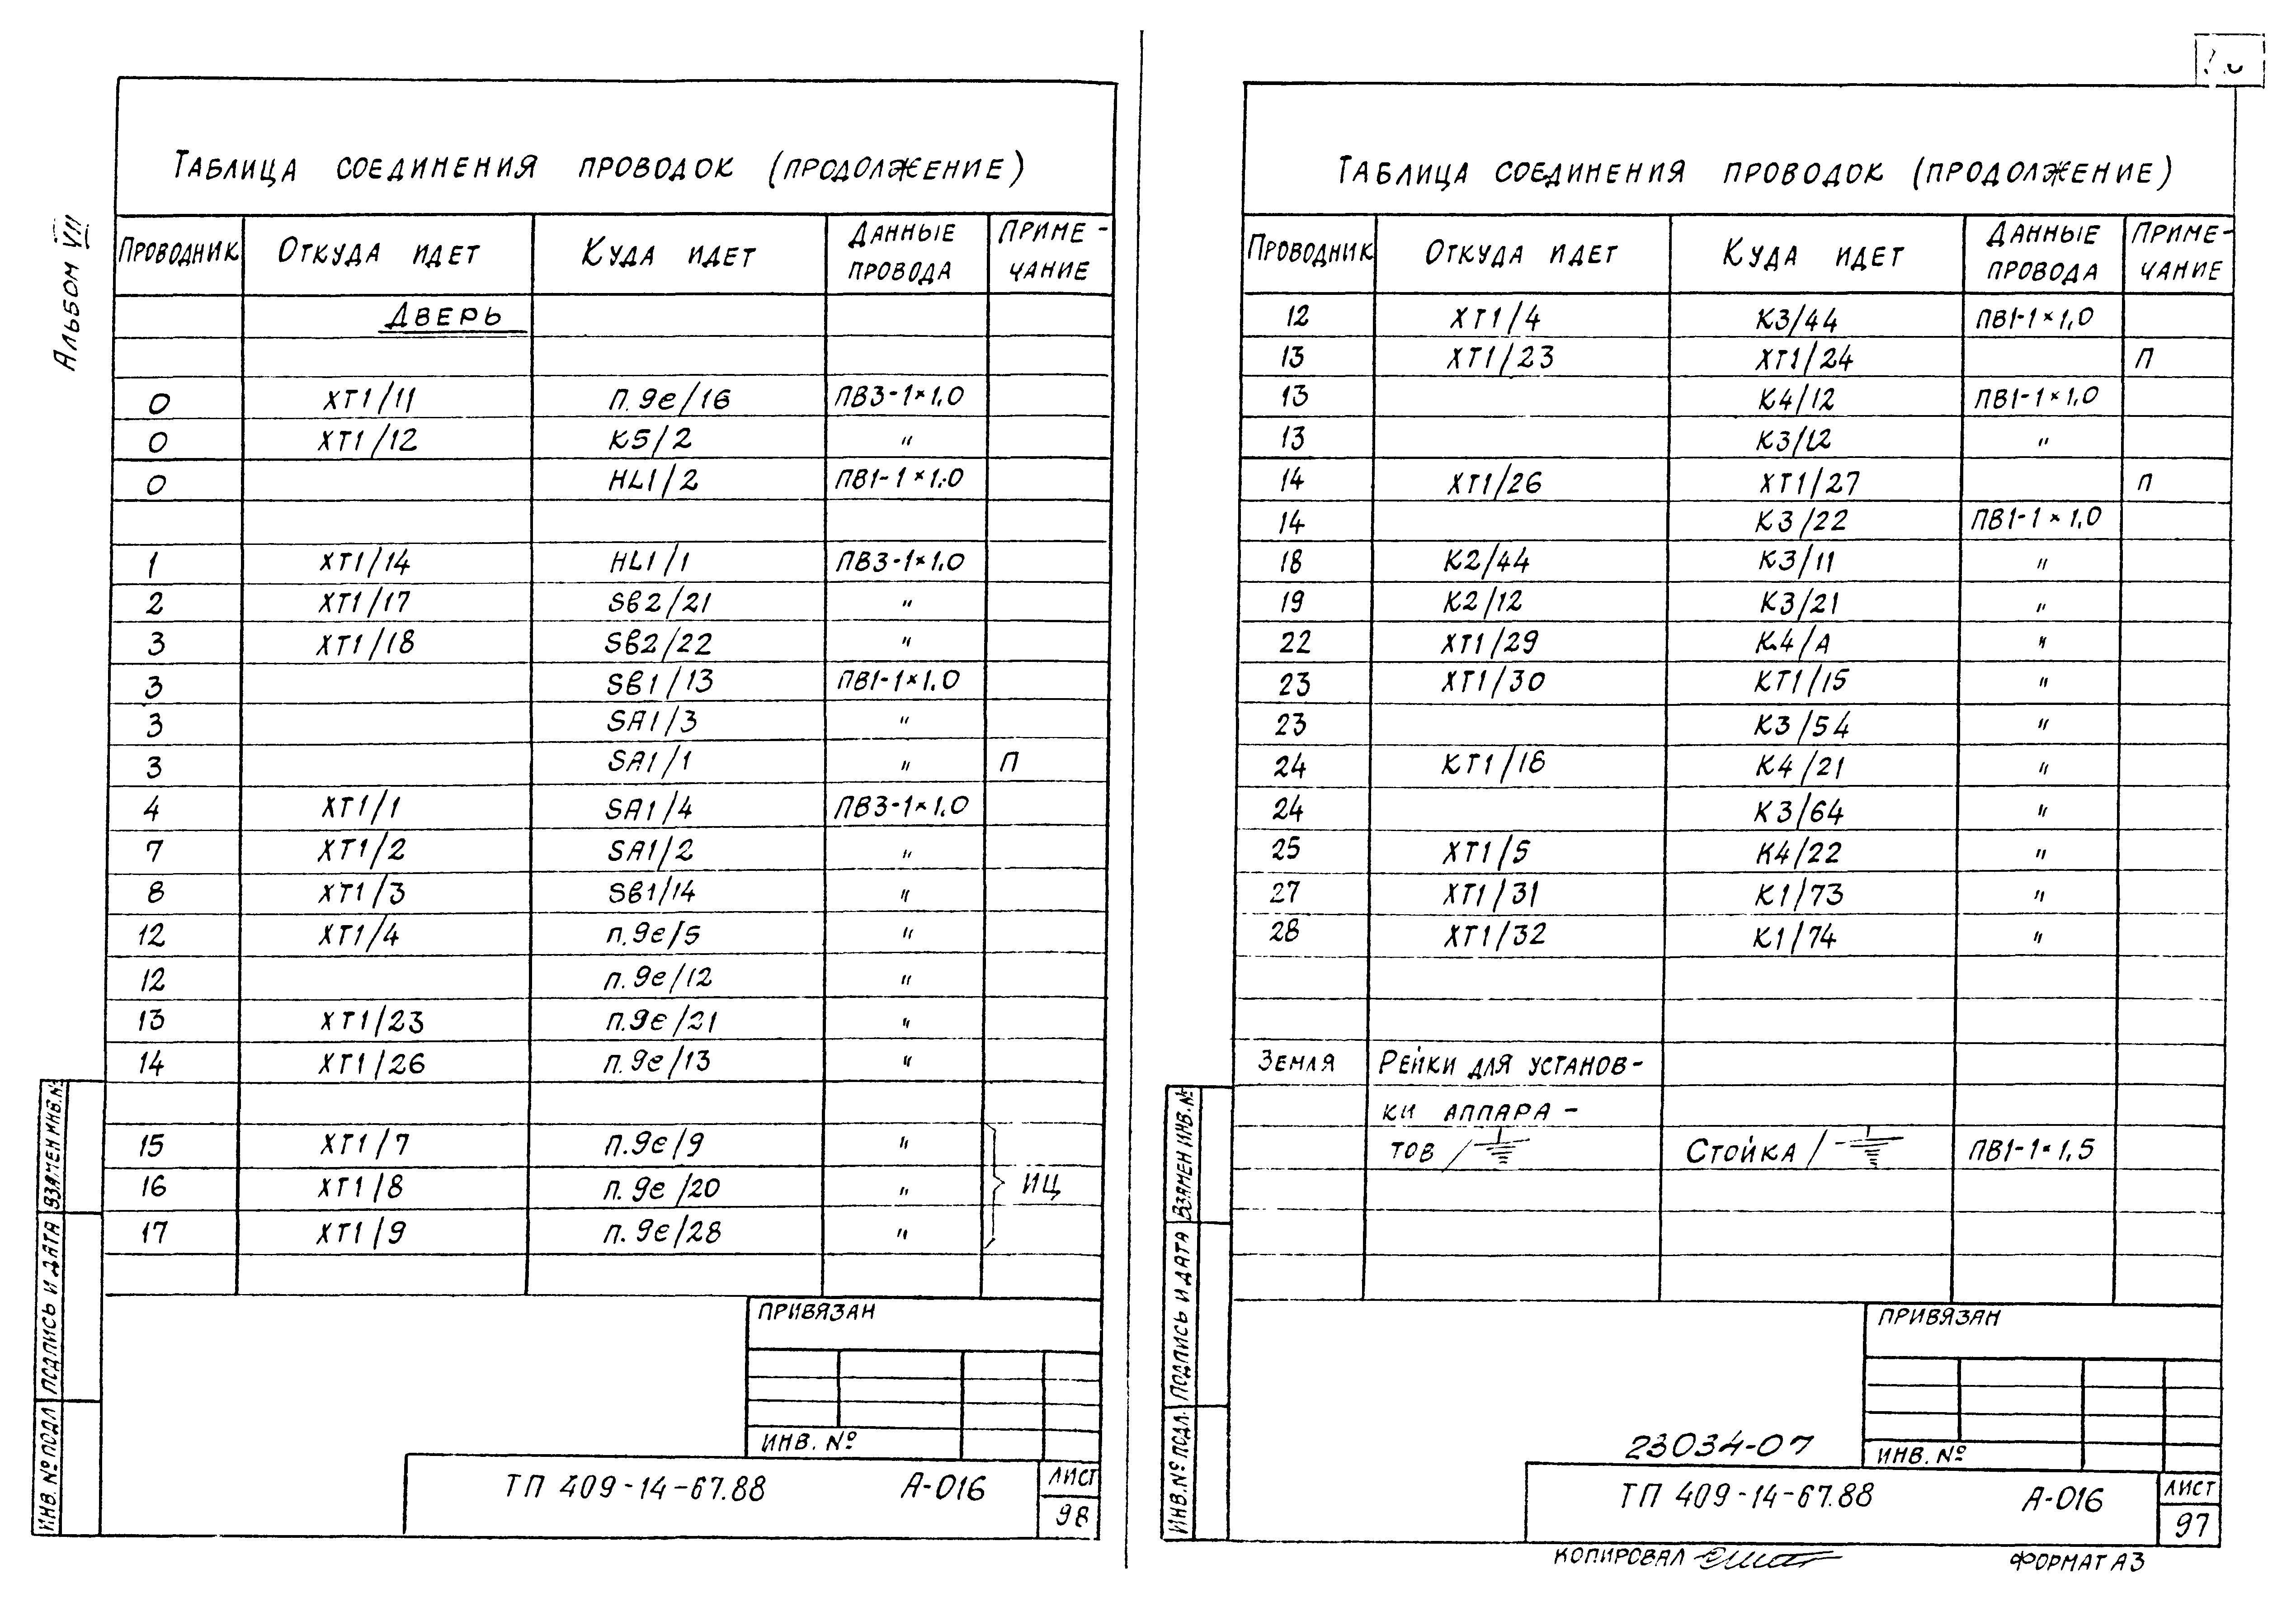 Альбом VII
Таблица соединения проводок (продолжение)
Проводник Откуда идет Куда идет Данные провода Приме-чание
Дверь
0 ХТ1/11 п.9е/16 ПВ3-1×1,0
0 ХТ1/12 К5/2 "
0 HL1/2 ПВ1-1×1,0
1 ХТ1/14 HL1/1 ПВ3-1×1,0
2 ХТ1/17 SB2/21 "
3 ХТ1/18 SB2/22 "
3 SB1/13 ПВ1-1×1,0
3 SA1/3 "
3 SA1/1 " П
4 ХТ1/1 SA1/4 ПВ3-1×1,0
7 ХТ1/2 SA1/2 "
8 ХТ1/3 SB1/14 "
12 ХТ1/4 п.9е/5 "
12 п.9е/12 "
13 ХТ1/23 п.9е/21 "
14 ХТ1/26 п.9е/13 "
15 ХТ1/7 п.9е/9 "
16 ХТ1/8 п.9е/20 " ИЦ
17 ХТ1/9 п.9е/28 "
Привязан
Инв. №
ТП 409-14-67.88 А-016
Лист
98
Инв.№ подл Подпись и дата Взамен инв.№
Таблица соединения проводок (продолжение)
Проводник Откуда идет Куда идет Данные провода Приме-чание
12 ХТ1/4 К3/44 ПВ1-1×1,0
13 ХТ1/23 ХТ1/24 П
13 К4/12 ПВ1-1×1,0
13 К3/12 "
14 ХТ1/26 ХТ1/27 П
14 К3/22 ПВ1-1×1,0
18 К2/44 К3/11 "
19 К2/12 К3/21 "
22 ХТ1/29 К4/А "
23 ХТ1/30 КТ1/15 "
23 К3/54 "
24 КТ1/18 К4/21 "
24 К3/64 "
25 ХТ1/5 К4/22 "
27 ХТ1/31 К1/73 "
28 ХТ1/32 К1/74 "
Земля Рейки для установ-
ки аппара-
тов/ Стойка/ ПВ1-1×1,5
Привязан
Инв. №
23034-07
ТП 409-14-67.88 А-016
Лист
97
Инв.№ подл. Подпись и дата Взамен инв.№
Копировал
Формат А3